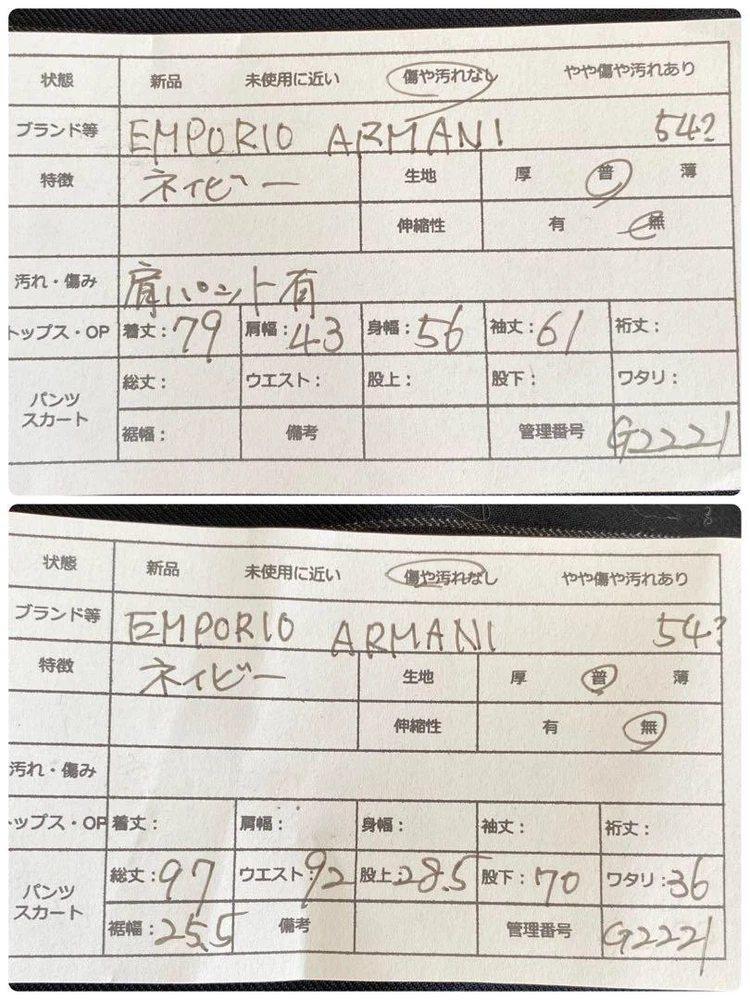 状態 新品 未使用に近い 傷や汚れなし やや傷や汚れあり
ブランド等 EMPORIO ARMANI 54?
特徴 ネイビー 生地 厚 普 薄
伸縮性 有 無
汚れ・傷み 肩パット有
トップス・OP 着丈:79 肩幅:43 身幅:56 袖丈:61 裄丈:
パンツ スカート 総丈: ウエスト: 股上: 股下: ワタリ:
裾幅: 備考 管理番号 G2221
状態 新品 未使用に近い 傷や汚れなし やや傷や汚れあり
ブランド等 EMPORIO ARMANI 54?
特徴 ネイビー 生地 厚 普 薄
伸縮性 有 無
汚れ・傷み
ップス・OP 着丈: 肩幅: 身幅: 袖丈: 裄丈:
パンツ スカート 総丈:97 ウエスト:92 股上:28.5 股下:70 ワタリ:36
裾幅:25.5 備考 管理番号 G2221